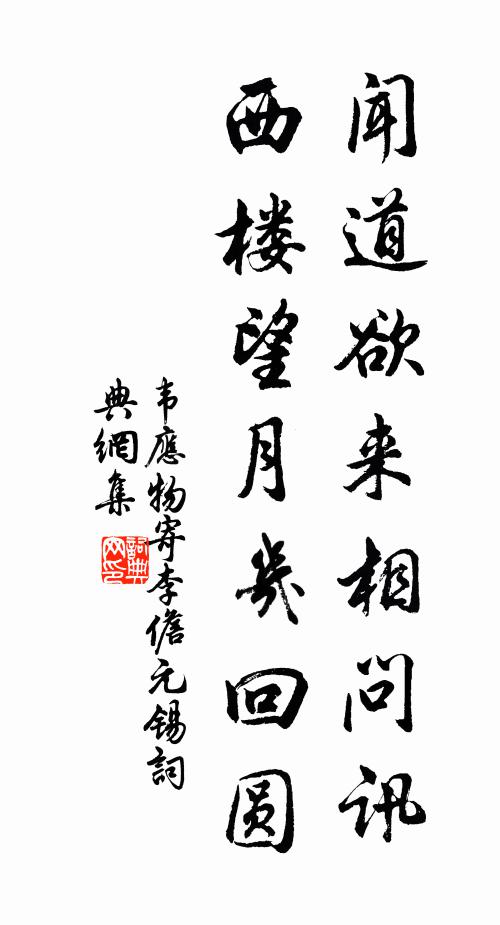 闻道欲来相问讯
西楼望月几回圆
韦應物寄李儋元锡詞
典網集
詞典网印